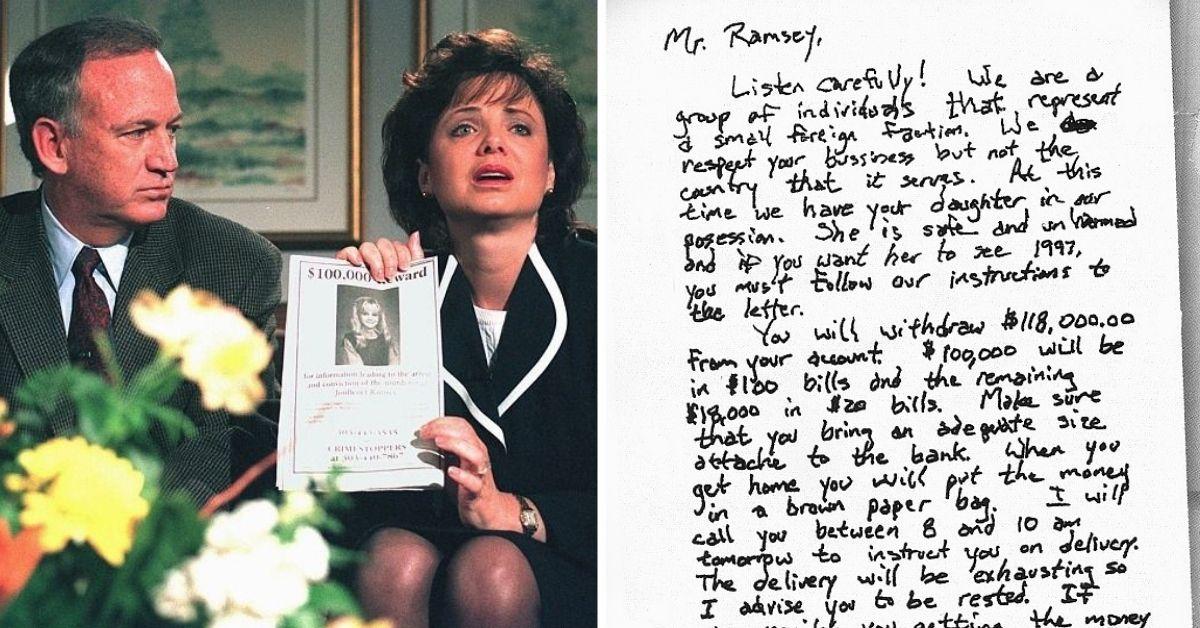 $100,000 Reward
for information leading to the arrest
and conviction of the murderer of
JonBenet Ramsey
CRIMESTOPPERS
at 303-440-7867
Mr. Ramsey,
Listen carefully! We are a
group of individuals that represent
a small foreign faction. We
respect your bussiness but not the
country that it serves. At this
time we have your daughter in our
posession. She is safe and unharmed
and if you want her to see 1997,
you must follow our instructions to
the letter.
You will withdraw $118,000.00
from your account. $100,000 will be
in $100 bills and the remaining
$18,000 in $20 bills. Make sure
that you bring an adequate size
attache to the bank. When you
get home you will put the money
in a brown paper bag. I will
call you between 8 and 10 am
tomorrow to instruct you on delivery.
The delivery will be exhausting so
I advise you to be rested. If
you getting the money